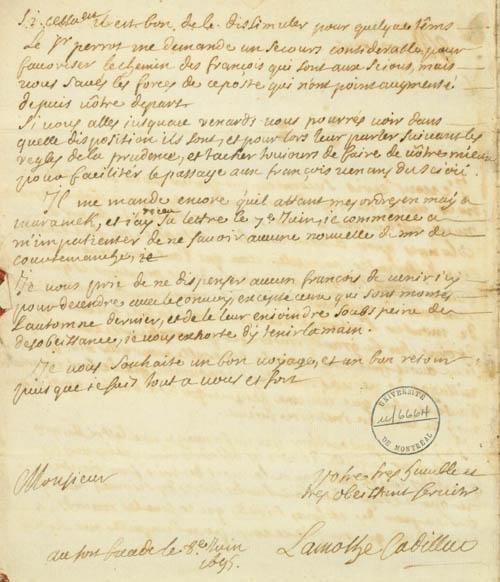 il est bon de le dissimuler pour quelque têms
Le Sr perrot me demande un secours considerable pour
favoriser le chemin des francois qui sont aux Scious, mais
vous savés les forces de ce poste qui n'ont point augmenté
depuis vôtre depart.
Si vous alles jusqua ce renards vous pourrés voir dans
quelle disposition ils sont, et pour lors leur parler suivant les
regles de la prudence, et tacher toujours de faire de vôtre mieux
pour faciliter le passage aux francois venans du
Il me mande encore qu'il attant mes ordres en may a
maramek, et j'ay receu sa lettre le 7e Juin, je commence a
m'impatienter de ne savoir aucune nouvelle de mr de
courtemanche, je
Je vous prie de ne dispenser aucun francois de venir icy
pour decendre avec le convoy, excepté ceux qui sont montés
l'automne dernier, et de le leur enjoindre soubs peine de
desobeissance, je vous exhorte d'y tenir la main.
Je vous souhaite un bon voyage, et un bon retour
puis que je suis tout a vous et fort
UNIVERSITÉ
DE MONTRÉAL
Monsieur
Votre tres humble et
tres obeissant servite
au fort buade le 8e Juin
1695.
Lamothe Cadillac